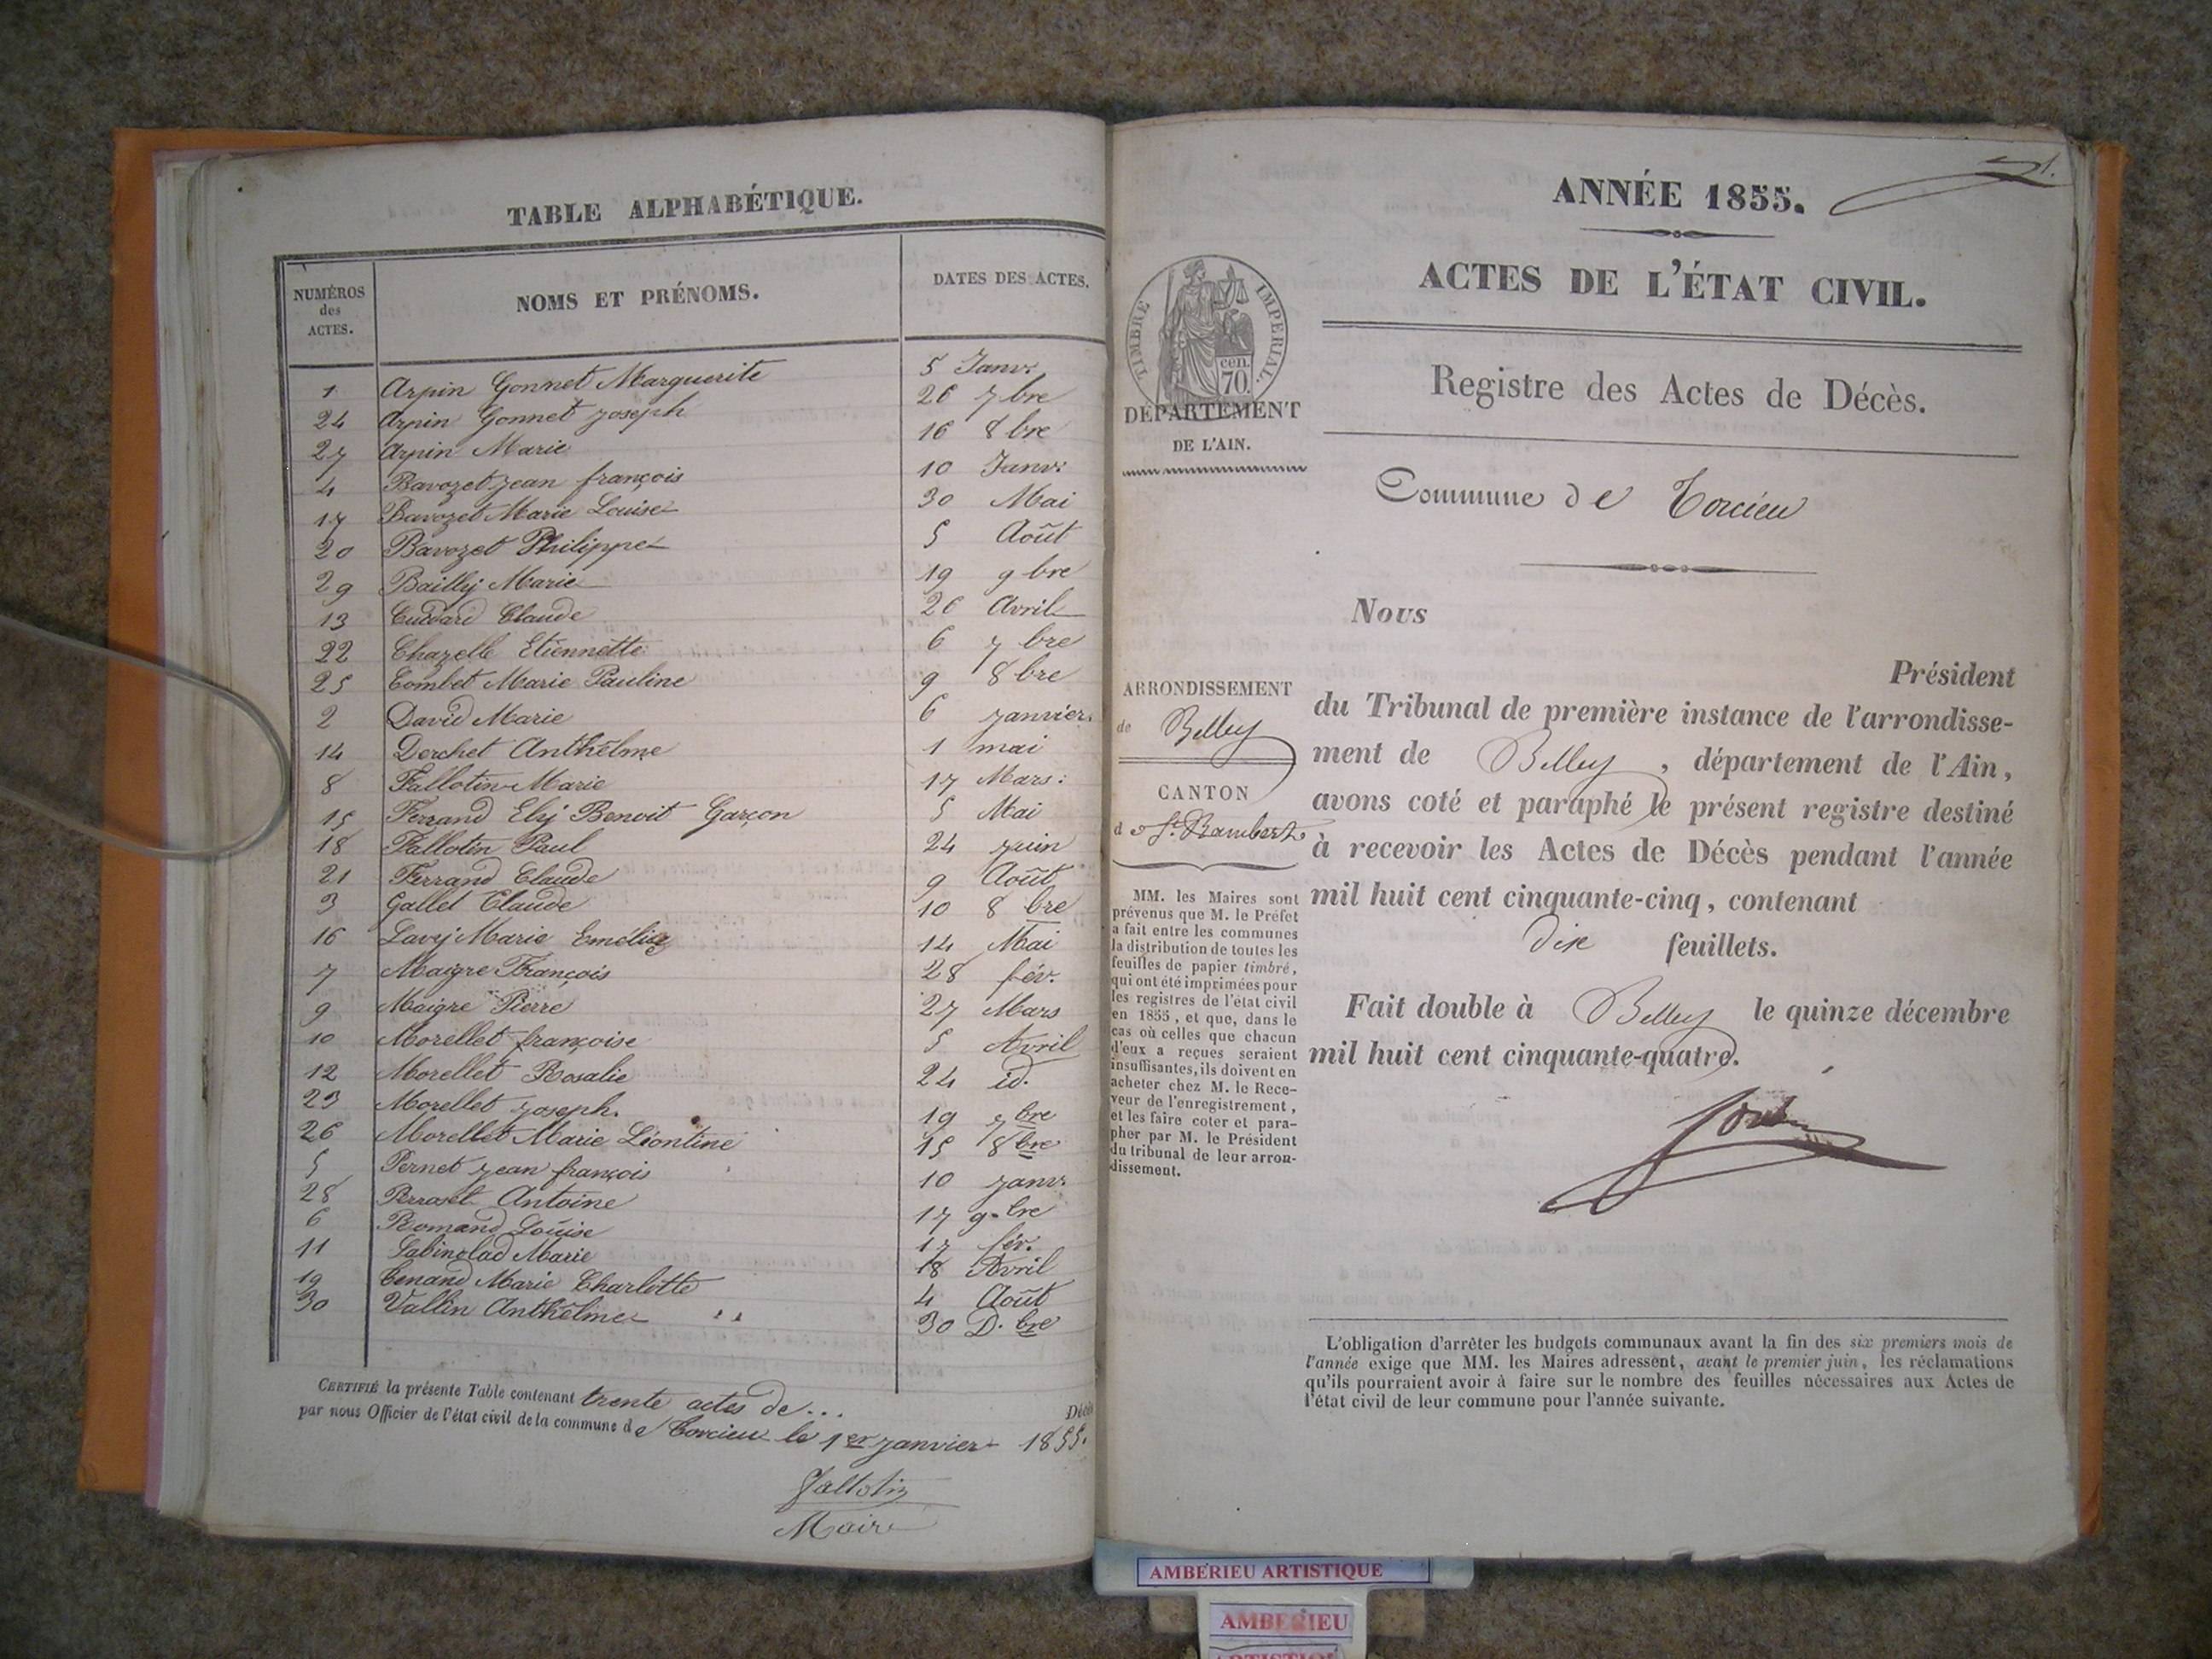 TABLE ALPHABÉTIQUE.
NUMÉROS des ACTES. NOMS ET PRÉNOMS. DATES DES ACTES.
1 Arpin Gonnet Marguerite 5 Janv.
24 Arpin Gonnet Joseph 26 7bre
27 Arpin Marie 16 8bre
4 Bavozet Jean françois 10 Janv.
17 Bavozet Marie Louise 30 Mai
20 Bavozet Philippe 5 Août
29 Bailly Marie 19 9bre
13 Claude 26 Avril
22 Chazelle Etiennette 6 7bre
25 Combet Marie Pauline 9 8bre
2 David Marie 6 janvier.
14 Derchet Anthelme 1 mai
8 Fallotin Marie 17 Mars
15 Ferrand Ely Benoit Garçon 5 Mai
18 Fallotin Paul 24 juin
21 Ferrand Claude 9 Août
3 Gallet Claude 10 8bre
16 Lavy Marie 14 Mai
7 Maigre François 28 fév.
9 Maigre Pierre 27 Mars
10 Morellet françoise 5 Avril
12 Morellet Rosalie 24 id.
23 Morellet Joseph. 19 7bre
26 Morellet Marie Léontine 15 8bre
5 Pernet Jean françois 10 janv.
28 Perraset Antoine 17 9bre
6 Romand Louise 17 fév.
11 Marie 18 Avril
19 Tenand Marie Charlotte 4 Août
30 Vallin Anthelme 30 D.bre
CERTIFIÉ la présente Table contenant trente actes de... Décès
par nous Officier de l'état civil de la commune de Torcieu le 1er janvier 1855.
Maire
ANNÉE 1855. 1.
ACTES DE L'ÉTAT CIVIL.
TIMBRE IMPÉRIAL.
cen.
70.
DÉPARTEMENT
DE L'AIN.
Registre des Actes de Décès.
Commune de Torcieu
ARRONDISSEMENT
de Belley
CANTON
de St. Rambert
MM. les Maires sont
prévenus que M. le Préfet
a fait entre les communes
la distribution de toutes les
feuilles de papier timbré,
qui ont été imprimées pour
les registres de l'état civil
en 1855, et que, dans le
cas où celles que chacun
d'eux a reçues seraient
insuffisantes, ils doivent en
acheter chez M. le Rece-
veur de l'enregistrement,
et les faire coter et para-
pher par M. le Président
du tribunal de leur arron-
dissement.
Nous
Président
du Tribunal de première instance de l'arrondisse-
ment de Belley, département de l'Ain,
avons coté et paraphé le présent registre destiné
à recevoir les Actes de Décès pendant l'année
mil huit cent cinquante-cinq, contenant
dix feuillets.
Fait double à Belley le quinze décembre
mil huit cent cinquante-quatre.
L'obligation d'arrêter les budgets communaux avant la fin des six premiers mois de
l'année exige que MM. les Maires adressent, avant le premier juin, les réclamations
qu'ils pourraient avoir à faire sur le nombre des feuilles nécessaires aux Actes de
l'état civil de leur commune pour l'année suivante.
AMBÉRIEU ARTISTIQUE
AMBERIEU